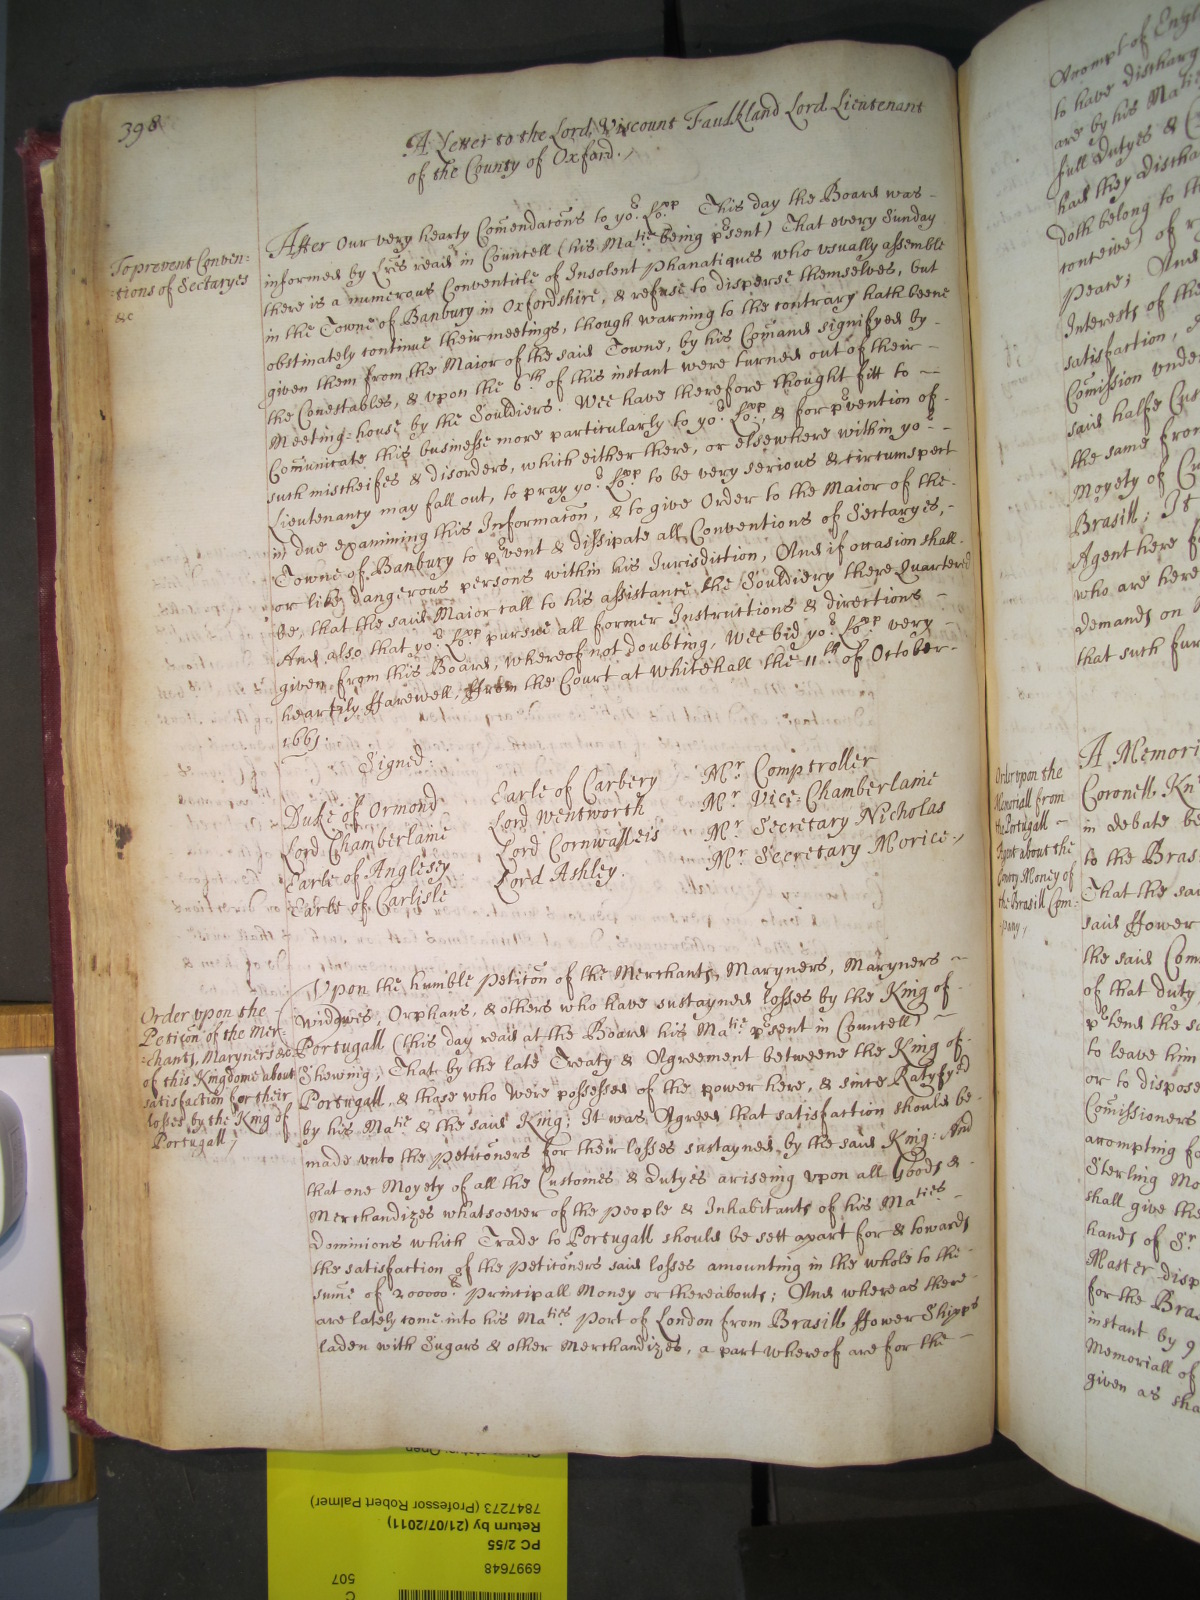 398
A Letter to the Lord Viscount Faulkland Lord Lieutenant
of the County of Oxford.
To prevent Conven:
:tions of Sectaryes
&c
After Our very hearty Com̄endacōns to yo:r Lo:pp This day the Board was
informed by Lrēs read in Councell (his Ma:tie being p̄sent) That every Sunday
there is a numerous Conventicle of Insolent Phanatiques who usually assemble
in the Towne of Banbury in Oxfordshire, & refuse to disperse themselves, but
obstinately continue their meetings, though warning to the contrary hath beene
given them from the Maior of the said Towne, by his Com̄and signifyed by
the Conestables, & upon the 6th of this instant were turned out of their
Meeting=house by the Souldiers. Wee have therefore thought fitt to
Com̄unicate this businesse more particularly to yo:r Lo:pp, & for p̄vention of
such mischeifes & disorders, which either there, or elsewhere within yo:r
Lieutenancy may fall out, to pray yo:r Lo:pp to be very serious & circumspect
in due examining this Informacōn, & to give Order to the Maior of the
Towne of Banbury to p̄vent & dissipate all Conventions of Sectaryes,
or like dangerous persons within his Jurisdiction, And if occasion shall
be, that the said Maior call to his assistance the Souldiery there Quartered
And also that yo:r Lo:pp pursue all former Instructions & directions
given from this Board, whereof not doubting, Wee bid yo:r Lo:pp very
heartily Farewell, From the Court at Whitehall the 11th of October
1661.
Signed.
Duke of Ormond
Lord Chamberlaine
Earle of Anglesey
Earle of Carlisle
Earle of Carbery
Lord Wentworth
Lord Cornwalleis
Lord Ashley.
Mr Comptroller
Mr Vice=Chamberlaine
Mr Secretary Nicholas
Mr Secretary Morice
Order upon the
Peticōn of the Mer:
:chants, Maryners &c
of this Kingdome about
satisfaction for their
losses by the King of
Portugall
Upon the humble Peticōn of the Merchants, Maryners, Maryners
Widowes, Orphans, & others who have sustayned losses by the King of
Portugall (this day read at the Board his Ma:tie p̄sent in Councell)
Shewing; That by the late Treaty & Agreement betweene the King of
Portugall, & those who were possessed of the power here, & since Ratyfyed
by his Ma:tie & the said King; It was Agreed that satisfaction should be
made unto the Peticōners for their losses sustayned by the said King: And
that one Moyety of all the Customes & Dutyes ariseing upon all Goods &
Merchandizes whatsoever of the people & Inhabitants of his Ma:ties
Dominions which Trade to Portugall should be sett apart for & towards
the satisfaction of the Peticōners said losses amounting in the whole to the
sum̄e of 200000:£ Principall Money or thereabouts; And whereas there
are lately come into his Ma:ties Port of London from Brasill Fower Shipps
laden with Sugars & other Merchandizes, a part whereof are for the
Accompt of
to have discharg
are by his Ma
full Dutyes &
had they discha
doth belong to th
conceive) of
Peace; And
Interests of the
satisfaction,
Com̄ission unde
said halfe Cus
the same from
Moyety of Cu
Brasill; It
Agent here
who are here
demands on
that such fur
Order upon the
Memoriall from
the Portugall
Agent about the
Money of
the Brasill Com:
:pany,
A Memori
Coronell Kn
in debate be
to the Bras
That the sai
said Fower
the said Com
of that duty
p̄tend the sa
to leave him
or to dispose
Com̄issioners
accompting fo
Sterling Mo
shall give the
hands of Sr
Master disp
for the Bra
instant by 9
Memoriall of
given as sha
C
507
6997648
PC 2/55
Return by (21/07/2011)
7847273 (Professor Robert Palmer)